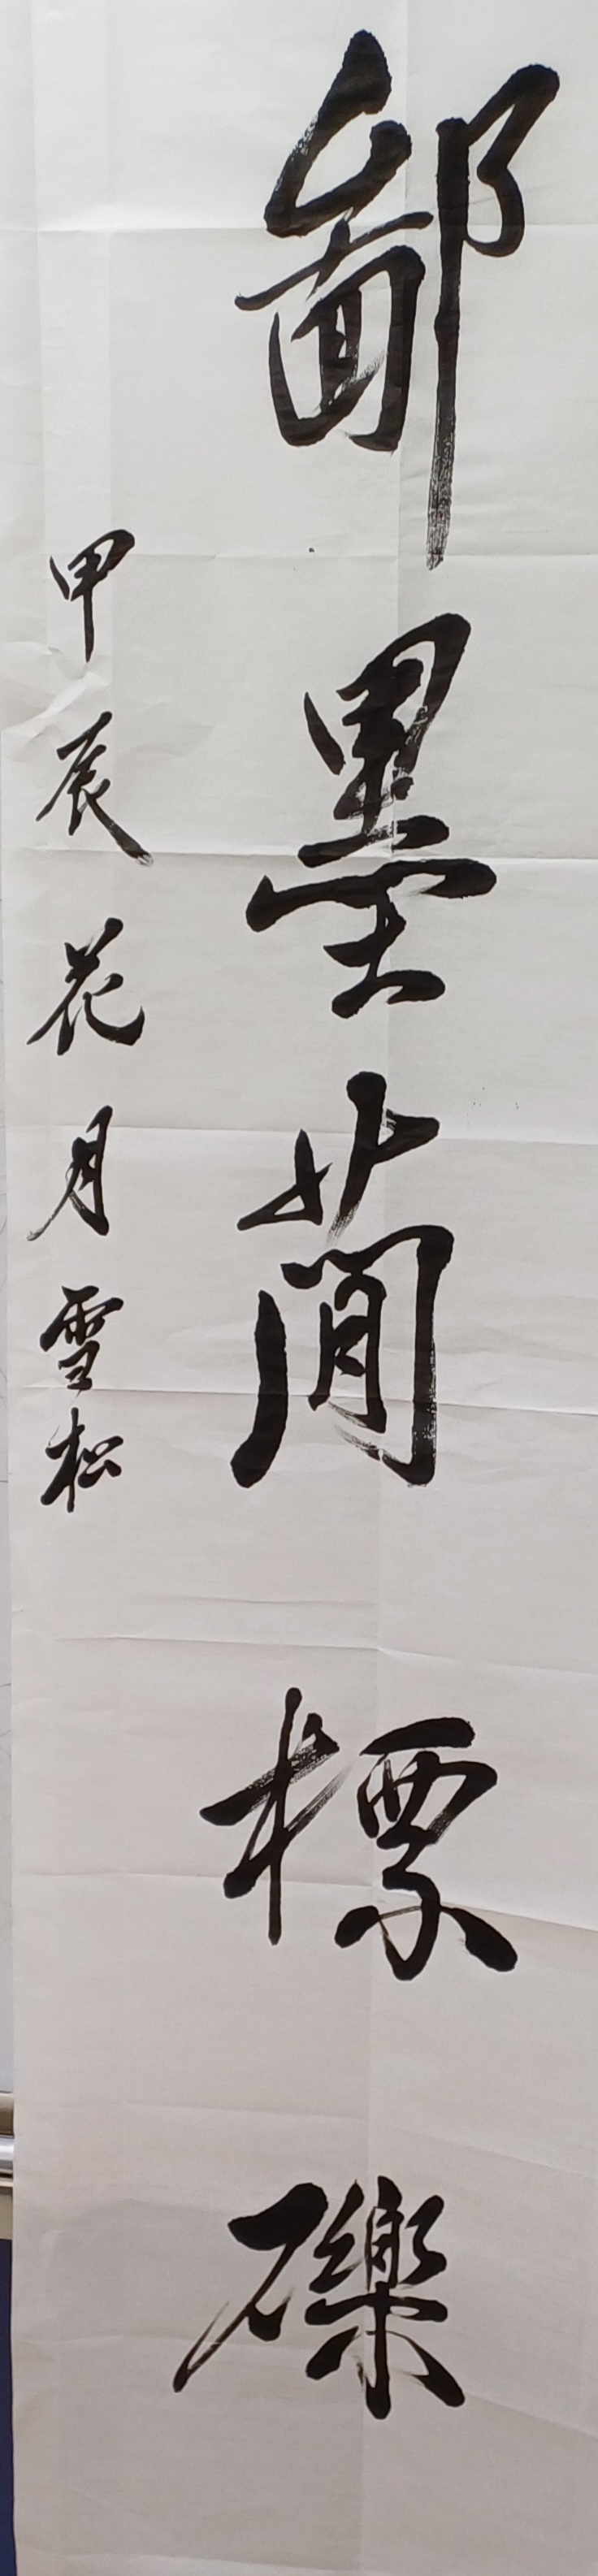 鄙墨蕳標礫
甲辰花月雪松